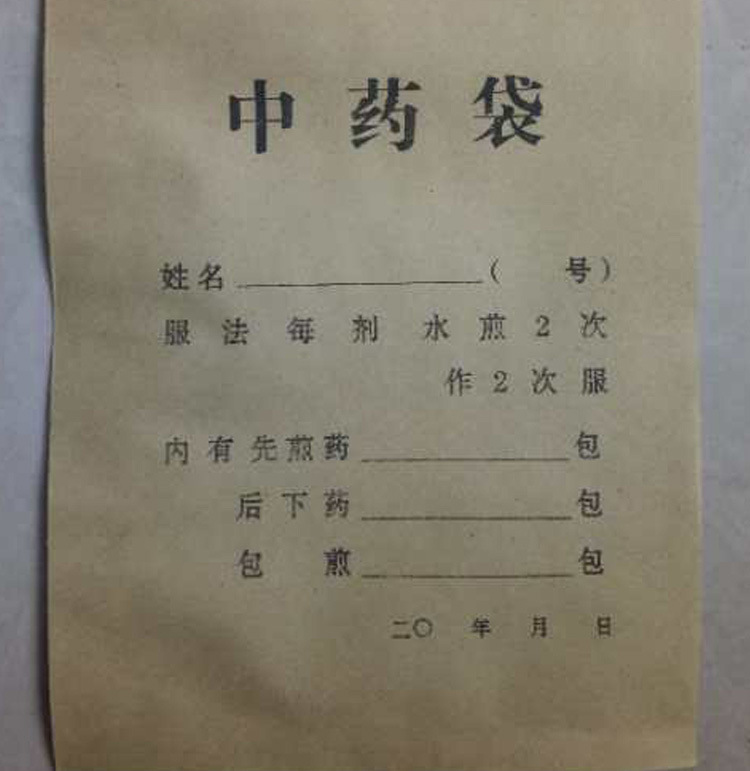 中药袋
姓名____________( 号)
服法每剂水煎2次
作2次服
内有先煎药__________包
后下药__________包
包煎__________包
二〇 年 月 日